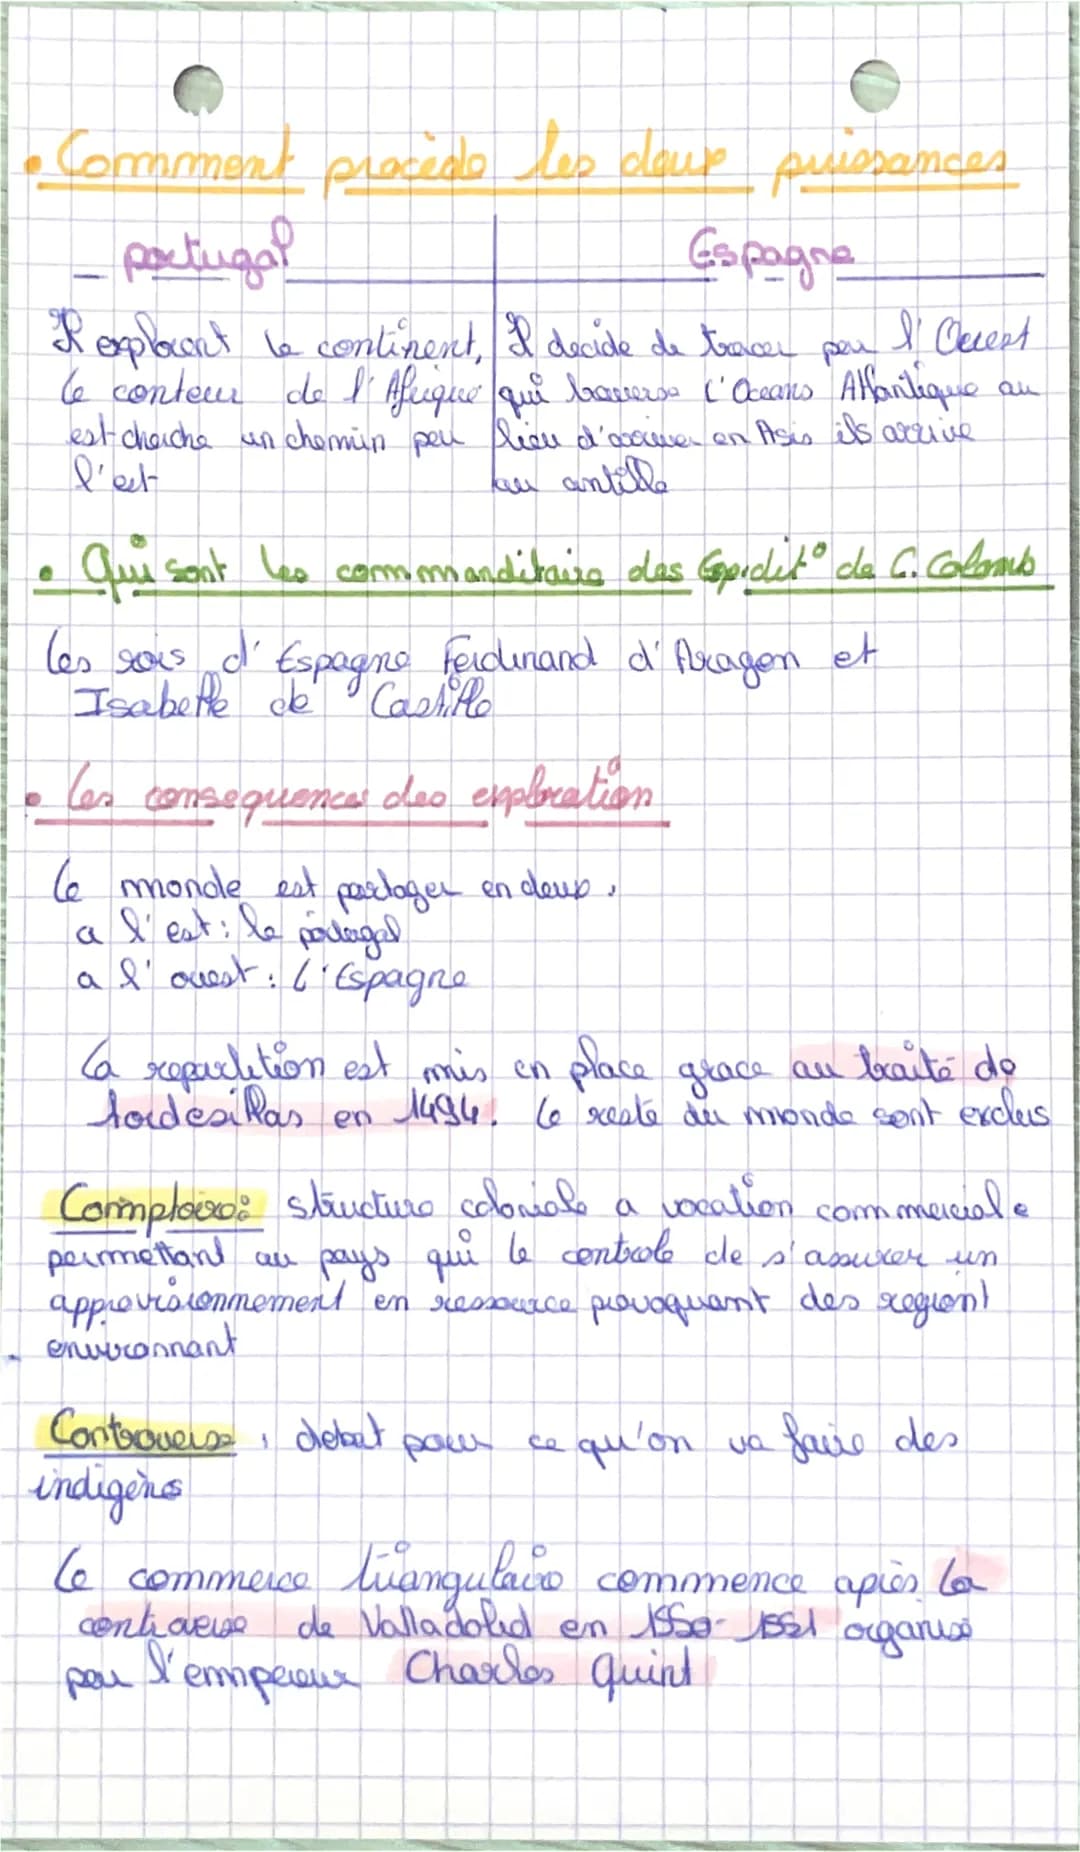 • Comment procède les deux puissances
portugal
Espagne
Il explorent le continent,
le conteur de l'Afrique
est cherche un chemin peu
l'est
Il decide de tracer par l'Ouest
qui traverse l'Oceans Atlantique au
lieu d'arriver en Asis ils arrive
au antille
• Qui sont les commanditaire des Expidit° de C. Colomb
les rois d'Espagne Ferdinand d'Aragon et
Isabelle de Castille
• les consequences des exploration
le monde est partager en deux,
a l'est : le podugal
a l'ouest : l'Espagne
la repartition est mis en place grace au traité de
tordesillas en 1494. le reste du monde sont exclus
Comptoire : structure coloniale a vocation commerciale
permettant au pays qui le controle de s'assurer un
approvisionnement en ressource provoquant des regiont
environnant
Controverse, debat pour ce qu'on va faire des
indigèns
le commerce triangulaire commence après la
contraverse de Valladolid en 1550-1551 organisé
par l'empereur Charles Quint